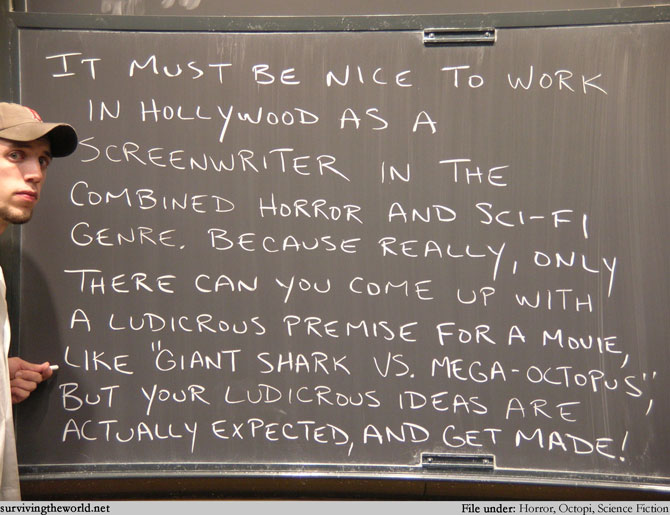 IT MUST BE NICE TO WORK
IN HOLLYWOOD AS A
SCREENWRITER IN THE
COMBINED HORROR AND SCI-FI
GENRE. BECAUSE REALLY, ONLY
THERE CAN YOU COME UP WITH
A LUDICROUS PREMISE FOR A MOVIE,
LIKE "GIANT SHARK VS. MEGA-OCTOPUS",
BUT YOUR LUDICROUS IDEAS ARE
ACTUALLY EXPECTED, AND GET MADE!
survivingtheworld.net File under: Horror, Octopi, Science Fiction